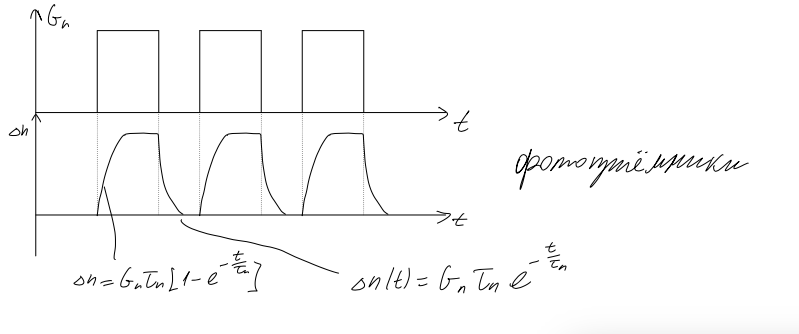 Gₙ
t
Δn
фотоприёмники
t
Δn = Gₙτₙ[1 - e^{-t/τₙ}]
Δn(t) = Gₙ τₙ e^{-t/τₙ}